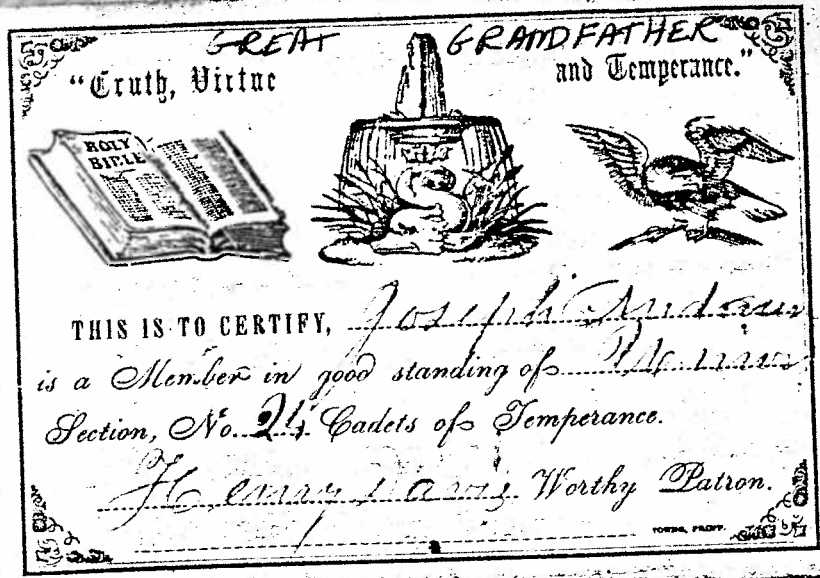 GREAT GRANDFATHER
"Truth, Virtue and Temperance."
HOLY
BIBLE
THIS IS TO CERTIFY, Joseph
is a Member in good standing of
Section, No. 24 Cadets of Temperance.
Henry Davis Worthy Patron.
TOWNE, PRINT.